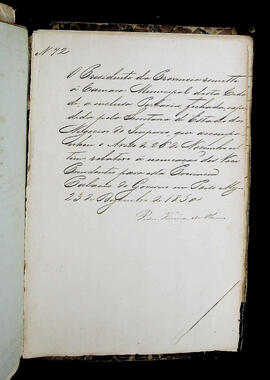 N 72
O Presidente da Provincia remette
á Camara Municipal desta Cida-
de, o incluso Officio, fechado, expe-
dido pela Secretaria de Estado dos
Negocios do Imperio que acompa-
nhou o Aviso de 26 de Novembro ul-
timo, relativo á nomeação do Vice
Presidente para esta Provincia
Palacio do Governo em Porto Alegre
23 de Dezembro de 1850